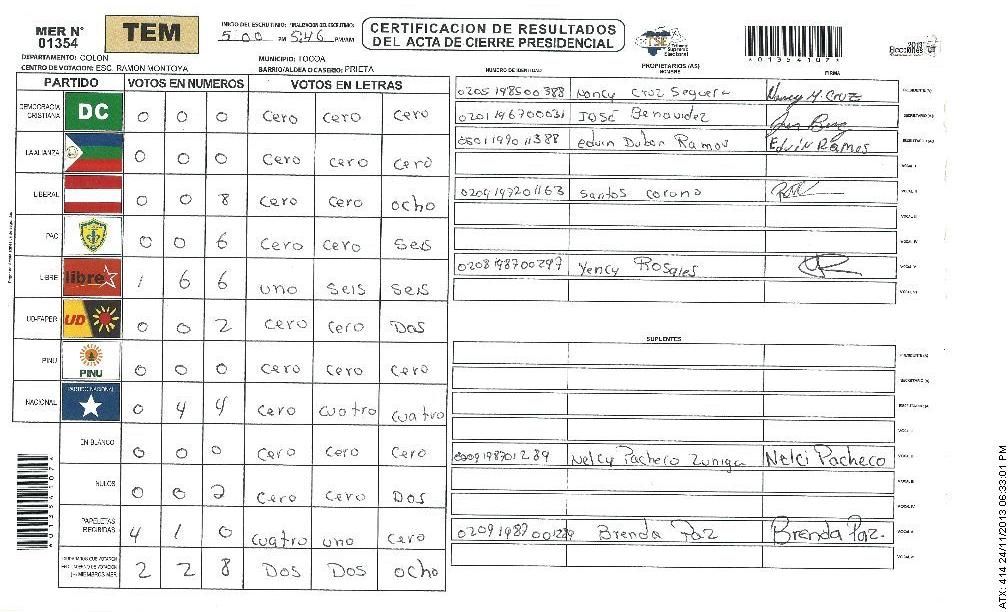 MER N° 01354
TEM
INICIO DEL ESCRUTINIO: FINALIZACION DEL ESCRUTINIO:
5 00 PM 5:46 PM/AM
CERTIFICACION DE RESULTADOS
DEL ACTA DE CIERRE PRESIDENCIAL
TSE Tribunal Supremo Electoral
*01354107*
2013 Elecciones
DEPARTAMENTO: COLON
MUNICIPIO: TOCOA
CENTRO DE VOTACION: ESC. RAMON MONTOYA
BARRIO/ALDEA O CASERIO: PRIETA
PARTIDO VOTOS EN NUMEROS VOTOS EN LETRAS
DEMOCRACIA CRISTIANA DC 0 0 0 Cero Cero Cero
LA ALIANZA 0 0 0 Cero Cero Cero
LIBERAL 0 0 8 Cero Cero ocho
PAC 0 0 6 Cero Cero Seis
LIBRE libre 1 6 6 uno Seis Seis
UD-FAPER UD 0 0 2 Cero Cero Dos
PINU PINU 0 0 0 Cero Cero Cero
NACIONAL PARTIDO NACIONAL 0 4 4 Cero Cuatro Cuatro
EN BLANCO 0 0 0 Cero Cero Cero
NULOS 0 0 2 Cero Cero Dos
PAPELETAS RECIBIDAS 4 1 0 Cuatro uno Cero
2 2 8 Dos Dos ocho
NUMERO DE IDENTIDAD PROPIETARIOS (AS) NOMBRE FIRMA
0205198500388 Nancy Cruz Seguera Nancy M. Cruz PRESIDENTE (A)
0201196700031 José Benavidez SECRETARIO (A)
edwin Dubon Ramos Edwin Ramos
VOCAL I
0209197201163 Santos Corona VOCAL II
VOCAL III
VOCAL IV
0208198700297 Yency Rosales VOCAL V
VOCAL VI
SUPLENTES
PRESIDENTE (A)
SECRETARIO (A)
VOCAL I
Nelcy Pacheco Zuniga Nelci Pacheco VOCAL II
VOCAL III
VOCAL IV
Brenda Paz Brenda Paz. VOCAL V
VOCAL VI
*01354107*
ATX: 414 24/11/2013 06:33:01 PM